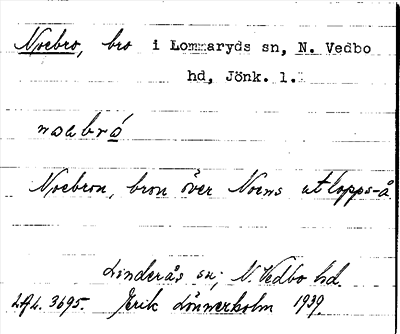 Noebro, bro i Lommaryds sn, N. Vedbo
hd, Jönk. l.
noabró
Noebron, bron över Noens utlopps-å.
Linderås sn; N. Vedbo hd.
LAL. 3695. Erik Lönnerholm 1939.